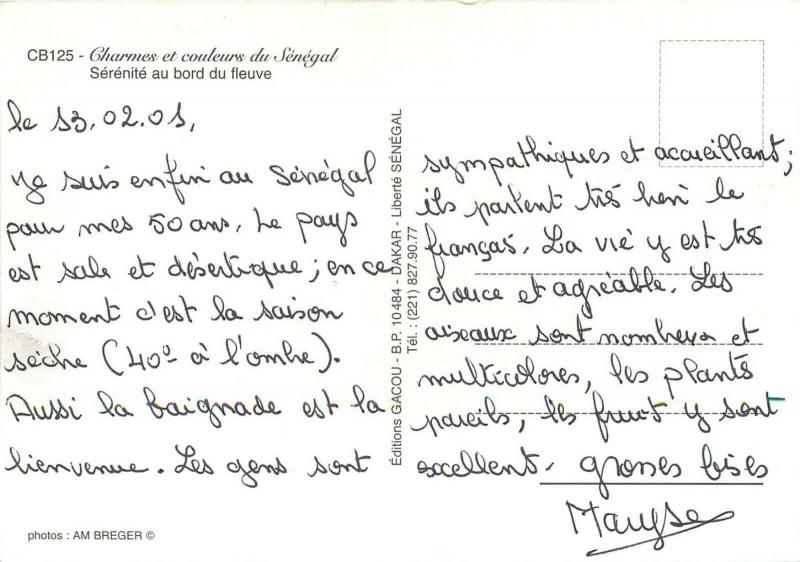 CB125 - Charmes et couleurs du Sénégal
Sérénité au bord du fleuve
le 13.02.01,
Je suis enfin au Sénégal
pour mes 50 ans. Le pays
est sale et désertique ; en ce
moment c'est la saison
sèche (40° à l'ombre).
Aussi la baignade est la
bienvenue. Les gens sont
photos : AM BREGER ©
Éditions GACOU - B.P. 10 484 - DAKAR - Liberté SÉNÉGAL
Tél. : (221) 827.90.77
sympathiques et accueillant ;
ils parlent très bien le
français. La vie y est très
douce et agréable. Les
oiseaux sont nombreux et
multicolores, les plantes
pareils, les fruit y sont
excellent. grosses bises
Maryse